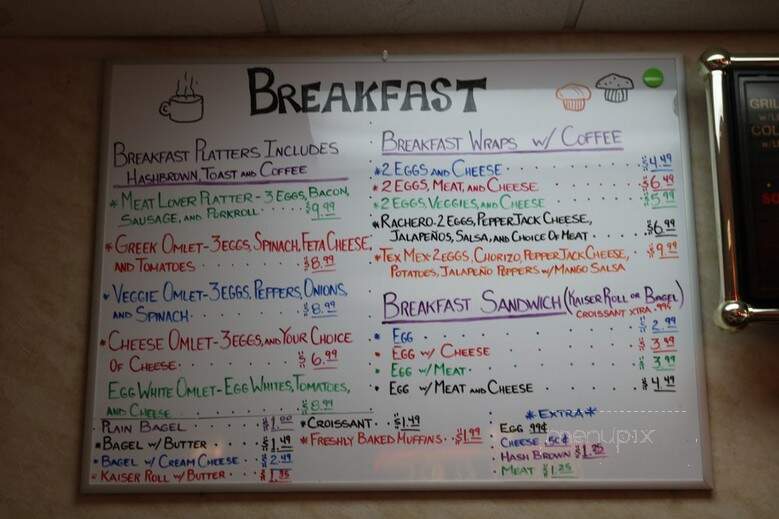 BREAKFAST
BREAKFAST PLATTERS INCLUDES
HASHBROWN, TOAST AND COFFEE
*MEAT LOVER PLATTER - 3 EGGS, BACON,
SAUSAGE, AND PORKROLL $9.99
*GREEK OMLET - 3 EGGS, SPINACH, FETA CHEESE,
AND TOMATOES $8.99
*VEGGIE OMLET - 3 EGGS, PEPPERS, ONIONS,
AND SPINACH $8.99
*CHEESE OMLET - 3 EGGS, AND YOUR CHOICE
OF CHEESE $6.99
EGG WHITE OMLET - EGG WHITES, TOMATOES,
AND CHEESE $8.99
PLAIN BAGEL $1.00
*BAGEL W/ BUTTER $1.49
*BAGEL W/ CREAM CHEESE $2.49
*KAISER ROLL W/ BUTTER $1.35
*CROISSANT $1.49
*FRESHLY BAKED MUFFINS $1.99
BREAKFAST WRAPS W/ COFFEE
*2 EGGS AND CHEESE $4.49
*2 EGGS, MEAT, AND CHEESE $6.49
*2 EGGS, VEGGIES, AND CHEESE $5.99
*RACHERO - 2 EGGS, PEPPER JACK CHEESE,
JALAPEÑOS, SALSA, AND CHOICE OF MEAT $6.99
*TEX MEX - 2 EGGS, CHORIZO, PEPPER JACK CHEESE, $9.99
POTATOES, JALAPEÑO POPPERS W/ MANGO SALSA
BREAKFAST SANDWICH (KAISER ROLL OR BAGEL)
CROISSANT XTRA .99¢
* EGG $2.99
* EGG W/ CHEESE $3.99
* EGG W/ MEAT $3.99
* EGG W/ MEAT AND CHEESE $4.49
*EXTRA*
EGG 99¢
CHEESE .50¢
HASH BROWN $1.25
MEAT $1.25
menupix
GRIL
COL